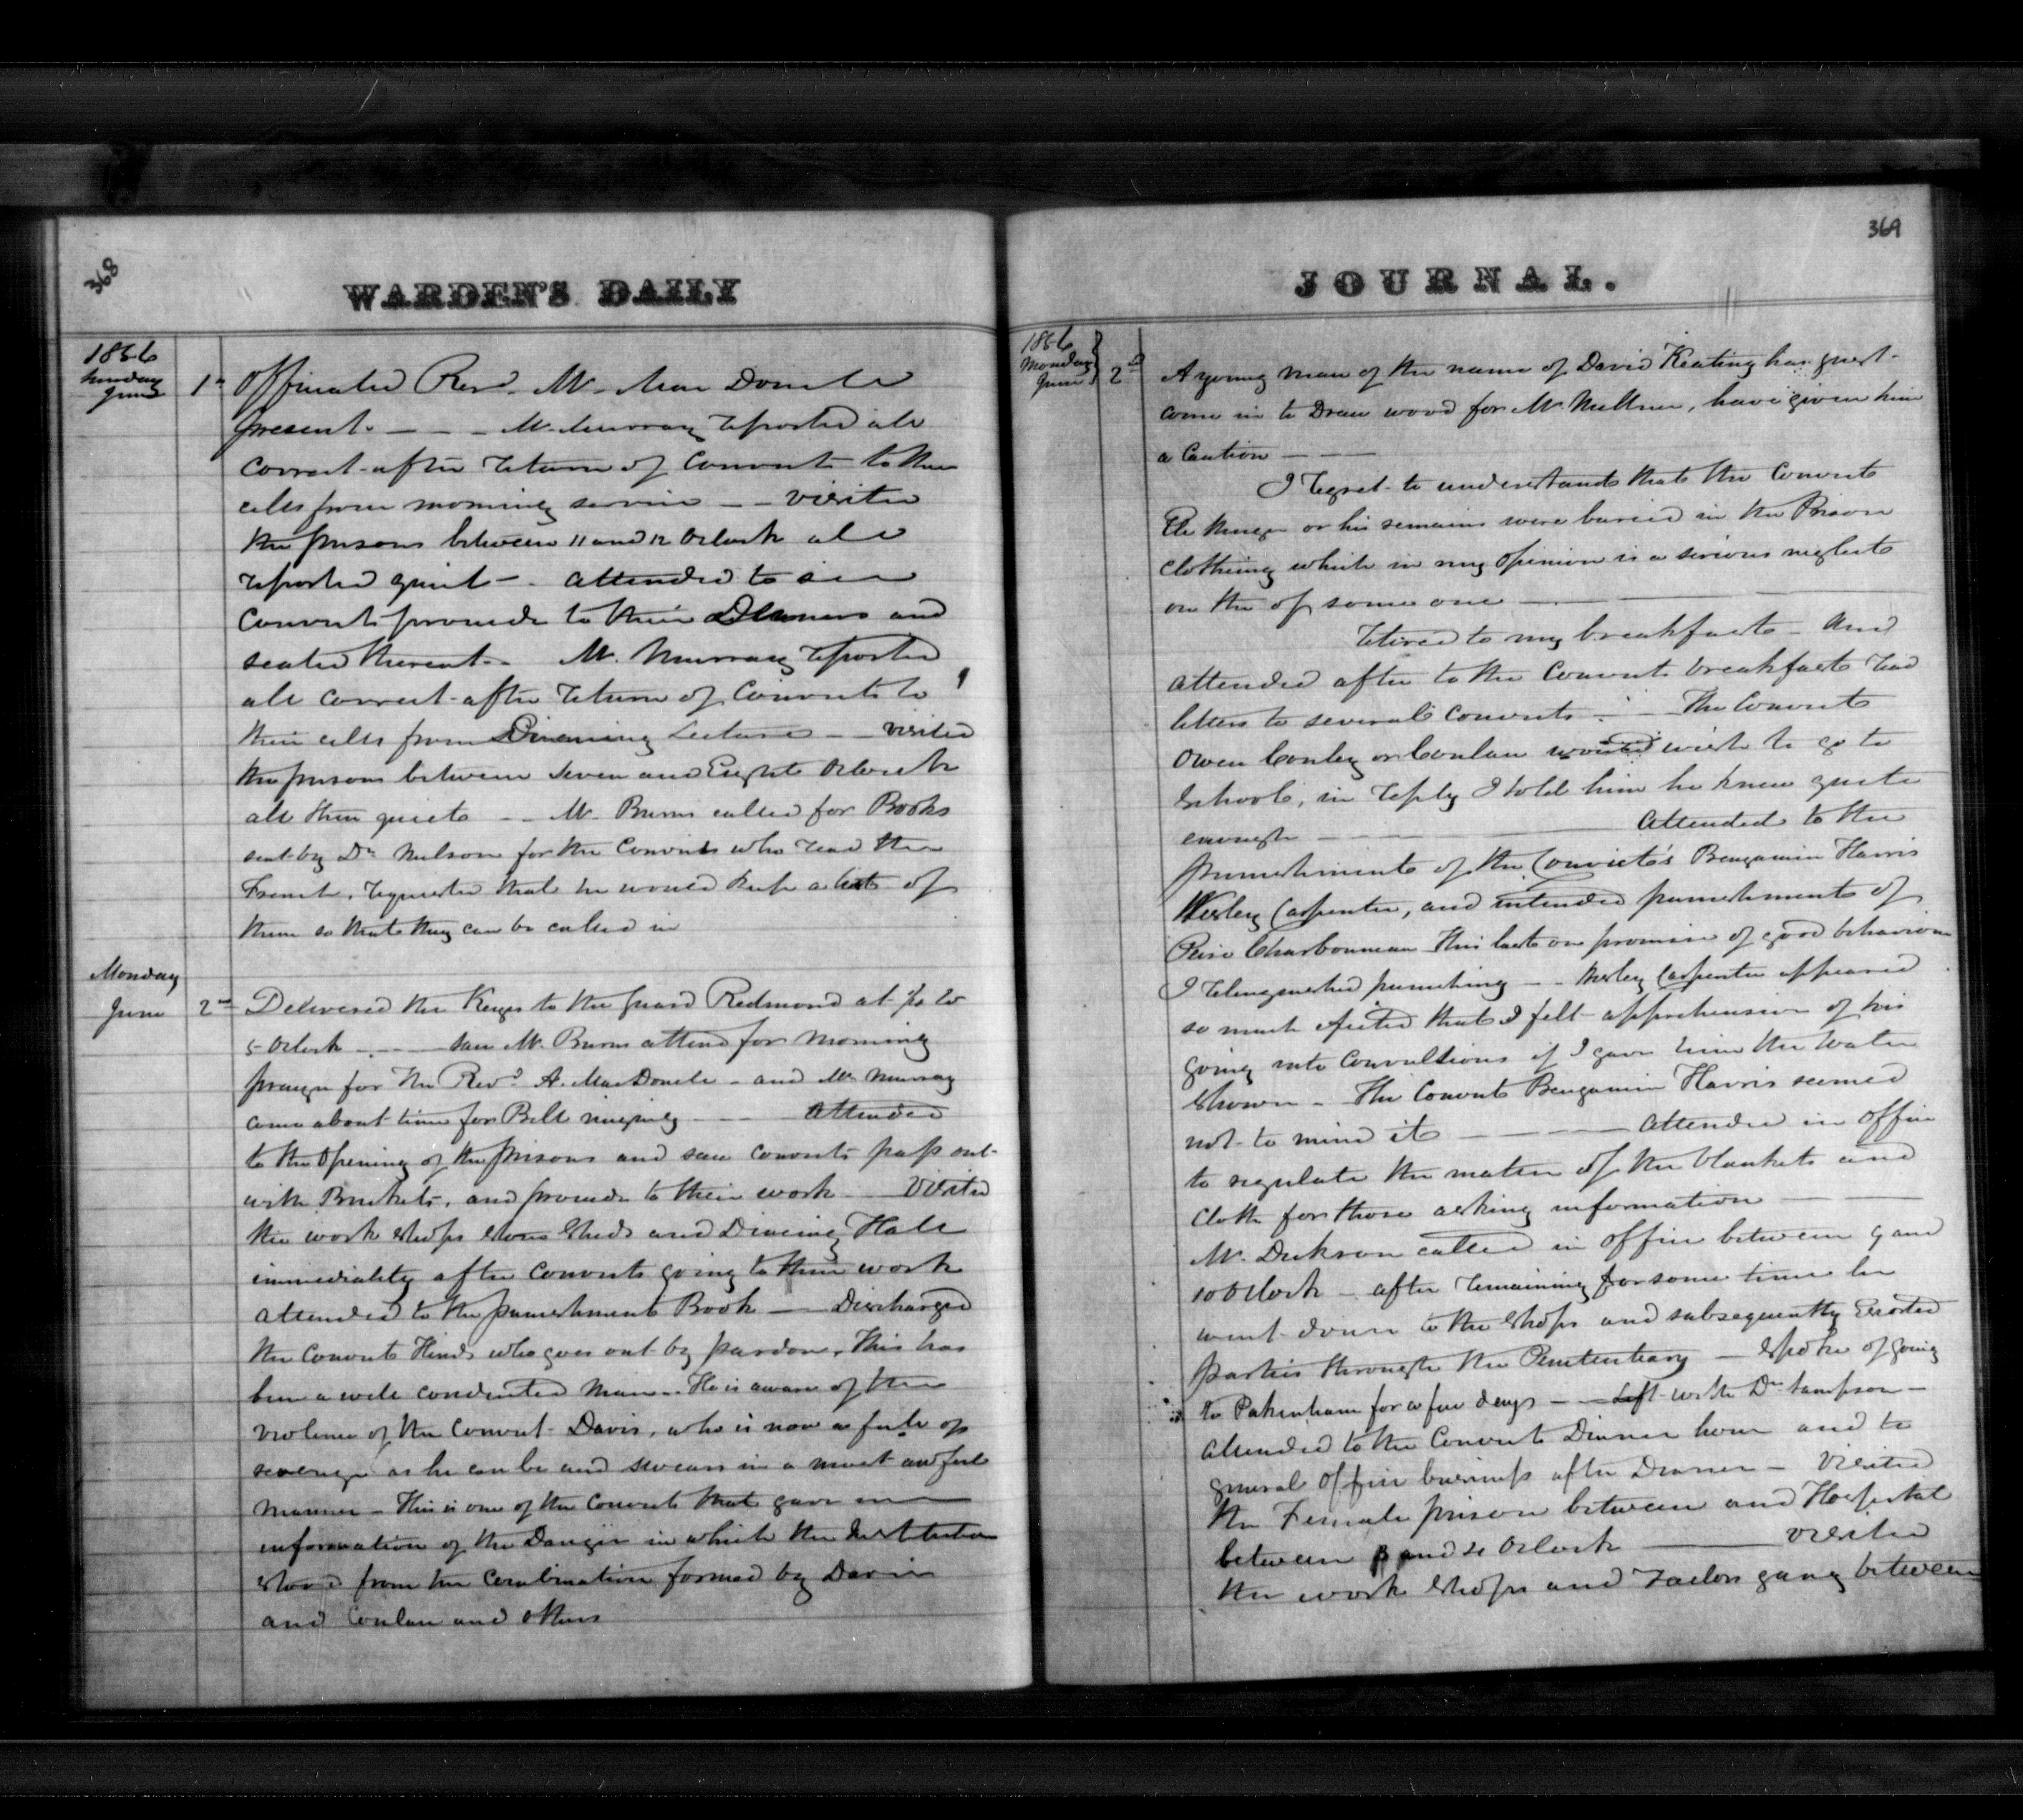 368
WARDEN'S DAILY
1856
Sunday
June
1st Officiated Revd. Mr. Mac Donell
present. — — — Mr. Murray reported all
correct after return of Convicts to their
cells from morning service — — visited
the prisons between 11 and 12 Oclock all
reported quiet — . attended to see
Convicts proceede to their Dinners and
seated thereat. — Mr. Murray reported
all correct after return of Convicts to
their cells from Lecture — — visited
the prisons between Seven and Eight Oclock
all then quiet — — Mr. Burns called for Books
sent by Dr. Nelson for the Convicts who read the
French, requested that he would keep a list of
them so that they can be called in
Monday
June
2nd Delivered the Keys to the guard Redmond at 1/4 to
5 Oclock — . — — saw Mr. Burns attend for morning
prayer for the Revd. A. MacDonell — and Mr. Murray
came about time for Bell ringing — — Attended
to the opening of the prisons and saw convicts pass out
with Buckets, and proceede to their work — Visited
the work shops stone sheds and Dining Hall
immediately after convicts going to their work
attended to the punishment Book — — Discharged
the convict Hinds who goes out by pardon, This has
been a well conducted man — He is aware of the
violence of the Convict Davis, who is now as full of
revenge as he can be and swears in a most awful
manner — This is one of the Convicts that gave me
information of the Danger in which the Institution
stood from the combination formed by Davis
and Conlan and others
369
JOURNAL.
1856
Monday
June
2nd
A young man of the name of David Keating has just
come in to Draw wood for Mr. Millner, have given him
a Caution — — —
I regret to understand that the Convict
or his remains were buried in the Prison
clothing which in my opinion is a serious neglect
on the of some one — — —
retired to my breakfast — And
attended after to the Convicts breakfast read
letters to several convicts — — The Convict
Owen Conley or Conlan wish to go to
School, in reply I told him he knew quite
enough — — — Attended to the
punishments of the Convicts Bengamin Harris
Wesley Carpenter, and intended punishment of
Charbonneau This last on promise of good behaviour
I relinquished punishing — — Wesley Carpenter appeared
so much that I felt apprehension of his
going into convultions if I gave him the water
shower — The Convict Bengamin Harris seemed
not to mind it — — — Attended in office
to regulate the matter of the blankets and
cloth for those asking information — — —
Mr. Dickson called in office between 9 and
10 Oclock — after remaining for some time he
went down to the shops and subsequently Escorted
parties through the Penitentiary — spoke of going
to Pakenham for a few days — — Left with Dr. Sampson —
attended to the Convicts Dinner hour and to
general office business after Dinner — Visited
the Female prison between and Hospital
between 3 and 4 Oclock — — visited
the work shops and Tailors gang between